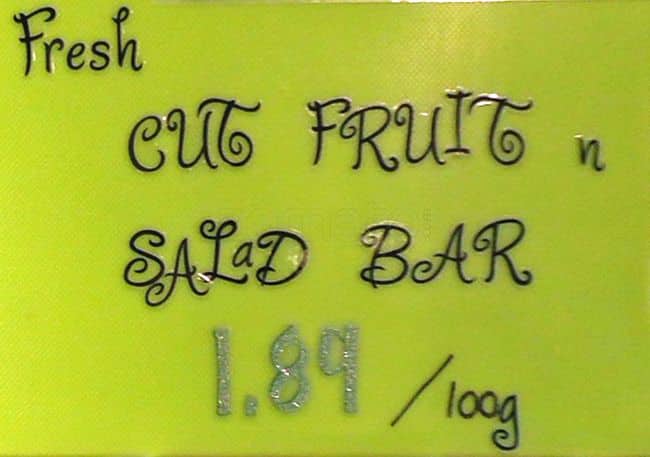 Fresh
CUT FRUIT n
SALaD BAR
1.89 /100g